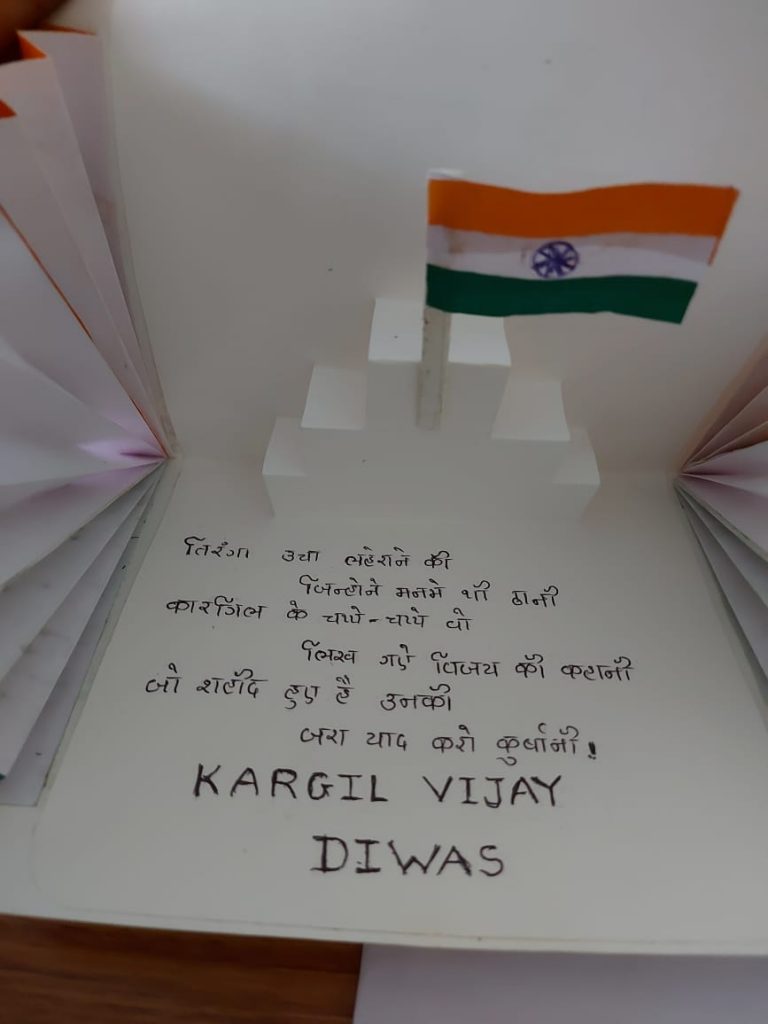 तिरंगा उचा लहेराने की
जिन्होने मनमे थी ठानी
कारगिल के चप्पे-चप्पे वो
लिख गऐ विजय की कहानी
जो शहीद हुए है उनकी
जरा याद करो कुर्बानी!
KARGIL VIJAY
DIWAS